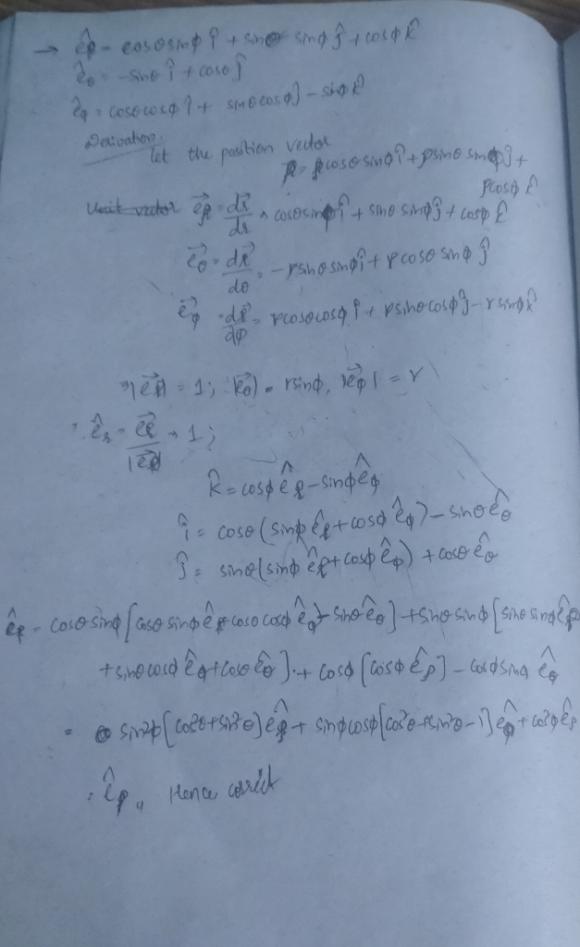 → ê_ρ = cosθ sinφ î + sinθ sinφ ĵ + cosφ k̂
ê_θ = -sinθ î + cosθ ĵ
ê_φ = cosθ cosφ î + sinθ cosφ ĵ - sinφ k̂
Derivation:
let the position vector
r = ρcosθ sinφ î + ρsinθ sinφ ĵ +
ρcosφ k̂
e⃗_ρ = dr⃗/dr = cosθ sinφ î + sinθ sinφ ĵ + cosφ k̂
e⃗_θ = dr⃗/dθ = -r sinθ sinφ î + r cosθ sinφ ĵ
e⃗_φ = dr⃗/dφ = r cosθ cosφ î + r sinθ cosφ ĵ - r sinφ k̂
|e⃗_ρ| = 1; |e⃗_θ| = r sinφ, |e⃗_φ| = r
ê_r = e⃗_r/|e⃗_r| → 1;
k̂ = cosφ ê_ρ - sinφ ê_φ
î = cosθ (sinφ ê_ρ + cosφ ê_φ) - sinθ ê_θ
ĵ = sinθ (sinφ ê_ρ + cosφ ê_φ) + cosθ ê_θ
ê_ρ = cosθ sinφ [cosθ sinφ ê_ρ + cosθ cosφ ê_φ - sinθ ê_θ] + sinθ sinφ [sinθ sinφ ê_ρ
+ sinθ cosφ ê_φ + cosθ ê_θ] + cosφ [cosφ ê_ρ] - cosφ sinφ ê_φ
= sin²φ [cos²θ + sin²θ] ê_ρ + sinφ cosφ [cos²θ + sin²θ - 1] ê_φ + cos²φ ê_ρ
= ê_ρ,, Hence correct